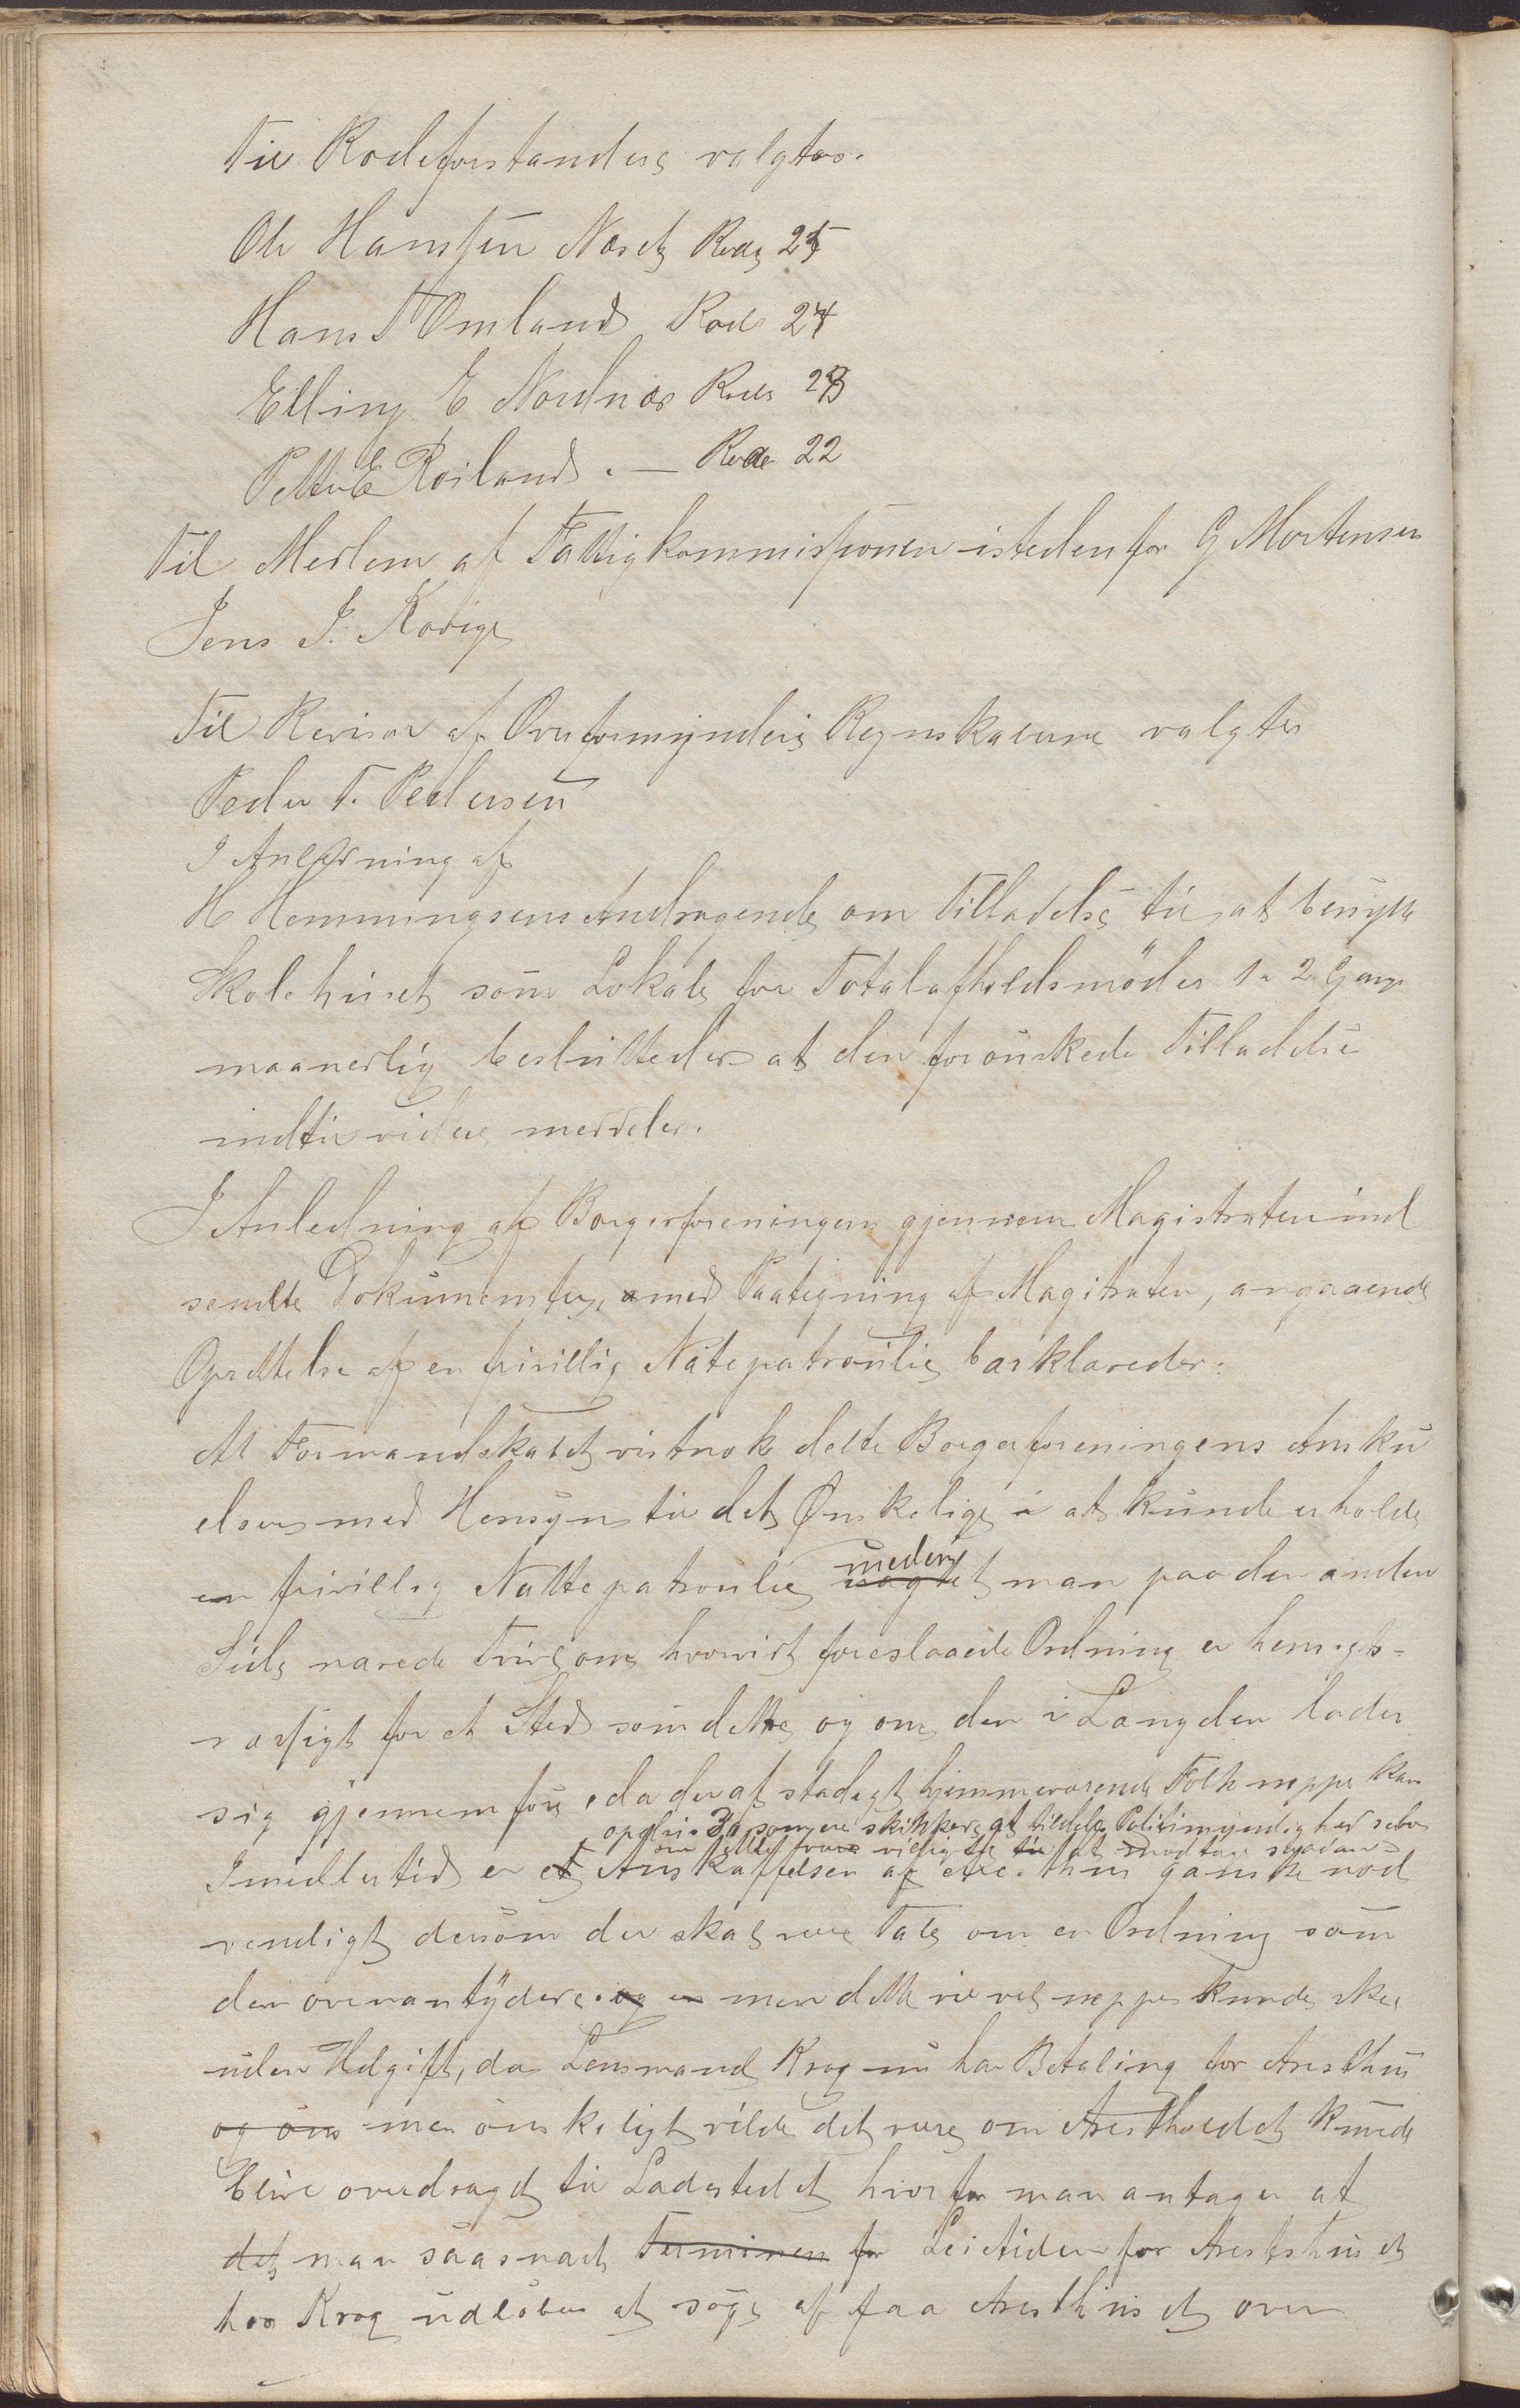 Til Rodeforstandere valgtes.
Ole Hansen Næset Rode 25
Hans T Omland Rode 24
Elling E Nordnæs Rode 23
Petter E Roiland. — Rode 22
Til Medlem af Fattigkommissionen istedenfor G Mortensen
Jens J. Kovige
Til Revisor af Overformynderi Regnskaberne valgtes
Peder T. Pedersen
I Anledning af
H Hemmingsens Andragende om Tilladelse til at benytte
Skolehuset som Lokale for Totalafholdsmöder 1 a 2 Gange
maanedlig besluttedes at den forönskede Tilladelse
indtil videre meddeles.
I Anledning af Borgerforeningens gjennem Magistraten ind
sendte Dokumenter, med Paategning af Magistraten, angaaende
Oprettelse af en frivillig Natepatroulie bæsklareder:
At Formandskabet vistnok delte Borgerforeningens Ansku
elser med Hensyn til det Ønskelige i at kunde erholde
en frivillig Nattepatroulie medens man paa den anden
Side nærede Tvivl om hvorvidt foreslaaede Ordning er hensigts-
væsigt for et Sted som dette og om den i Længden lader
sig gjennemföre, da der af stadigt hjemmeværende Folk neppe kan
opdrives 30 som ere skikkede at tildele Politimyndighed selv
om dette var villigt til at modtage saadan
Imidlertid er Anskaffelsen af et hus ganske nöd
vendigt dersom der skal være Tale om en Ordning som
den ovenantydere men dette vil vel neppe kunde ske
uden Udgift, da Lensmand Krog nu har Betaling for Aresthus
og öns men önskeligt vilde det være om Aresthuset kunde
blive overdraget til Ladestedet hvorfor man antager at
det man saasnart Terminen for Leietiden for Aresthuset
hos Krog udlöber at söge at faa Aresthuset over